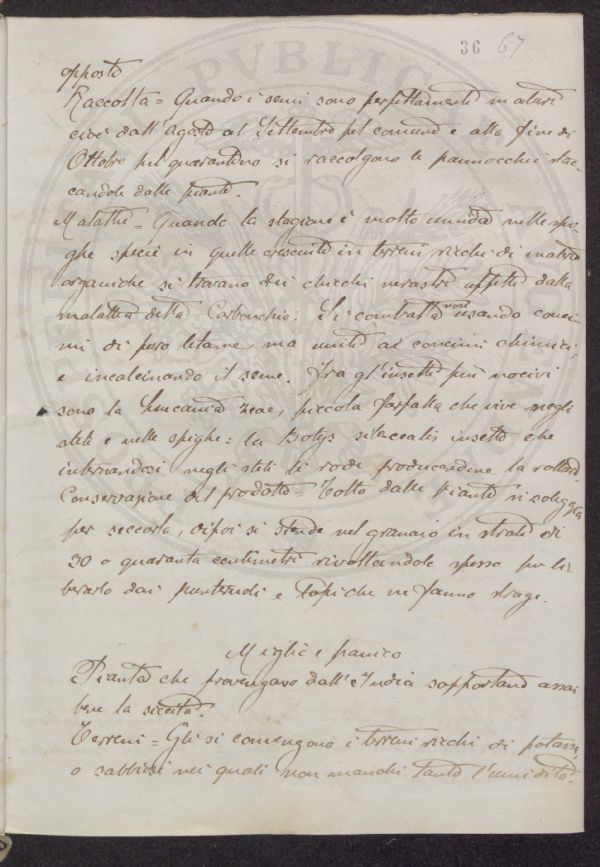 36 67
opposto
Raccolta = Quando i semi sono perfettamente maturi
cioè dall'Agosto al Settembre pel comune e alla fine di
Ottobre pel quarantino si raccolgono le pannocchie stac-
candole dalle piante.
Malattie = Quando la stagione è molto umida nelle spi-
ghe specie in quelle cresciute in terreni ricchi di materie
organiche si trovano dei chicchi nerastri affetti dalla
malattia detta Carbonchio: Si combatte non usando conci-
mi di puro letame ma unito ai concimi chimici
e incalcinando il seme. Fra gl'insetti più nocivi
sono la Leucania zeae, piccola farfalla che vive negli
steli e nelle spighe: la Botys silacealis insetto che
internandosi negli steli li rode producendone la rottura
Conservazione del prodotto = Tolto dalle piante si soleggia
per seccarlo, di poi si stende nel granaio in strati di
30 o quaranta centimetri rivoltandolo spesso per li-
berarlo dai punteruoli e topi che ne fanno strage.
Miglio e panico
Piante che provengano dall'India sopportano assai
bene la siccità.
Terreni = Gli si convengono i terreni ricchi di potassa,
o sabbiosi nei quali non manchi tanto l'umidità.
PVBLICAE